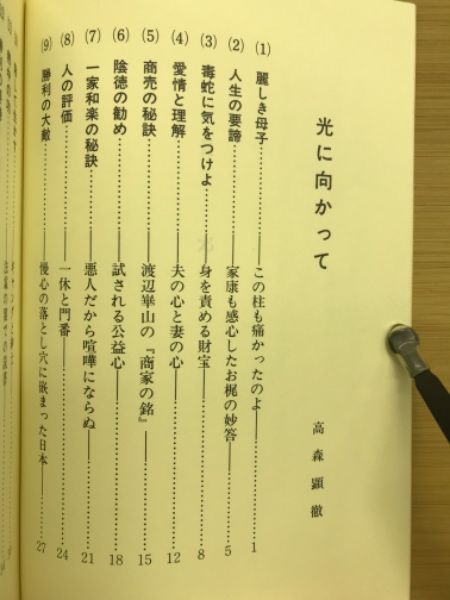 光に向かって
高森顕徹
(1) 麗しき母子………この柱も痛かったのよ………1
(2) 人生の要諦………家康も感心したお梶の妙答………5
(3) 毒蛇に気をつけよ………身を責める財宝………8
(4) 愛情と理解………夫の心と妻の心………12
(5) 商売の秘訣………渡辺崋山の『商家の銘』………15
(6) 陰徳の勧め………試される公益心………18
(7) 一家和楽の秘訣………悪人だから喧嘩にならぬ………21
(8) 人の評価………一休と門番………24
(9) 勝利の大敵………慢心の落とし穴に嵌まった日本………27